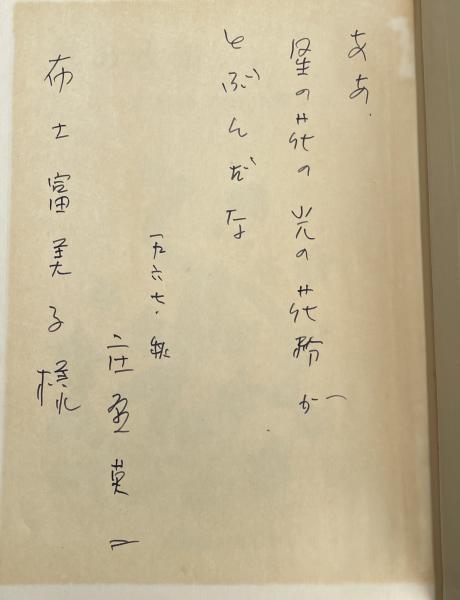 ああ、
星の花の光の花粉が
とぶんだな
一九六七・秋
庄野英二
布士富美子様